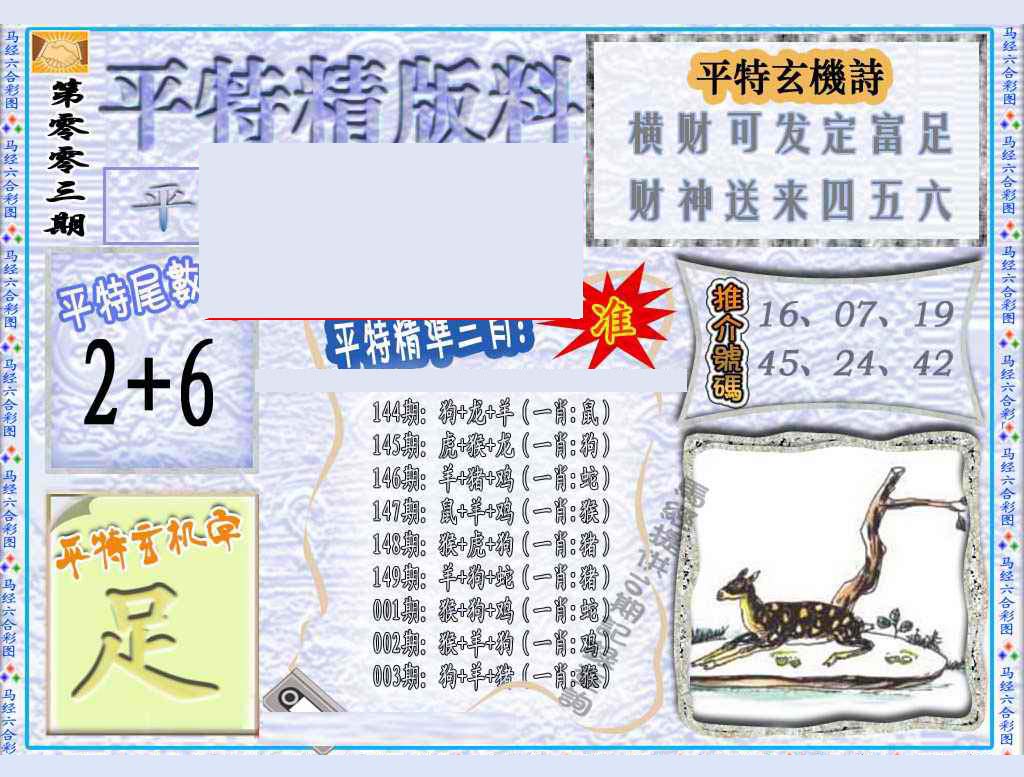 第零零三期
平特精版料
平
平特玄機詩
横财可发定富足
财神送来四五六
平特尾數
2+6
平特精準三肖!
准
推介號碼
16、07、19
45、24、42
144期: 狗+龙+羊(一肖:鼠)
145期: 虎+猴+龙(一肖:狗)
146期: 羊+猪+鸡(一肖:蛇)
147期: 鼠+羊+鸡(一肖:猴)
148期: 猴+虎+狗(一肖:猪)
149期: 羊+狗+蛇(一肖:猪)
001期: 猴+狗+鸡(一肖:蛇)
002期: 猴+羊+狗(一肖:鸡)
003期: 狗+羊+猪(一肖:猴)
平特玄机字
足
马经六合彩图
马经六合彩图
马经六合彩图
马经六合彩图
马经六合彩图
马经六合彩图
马经六合彩
马经六合彩图
马经六合彩图
马经六合彩图
马经六合彩
马经六合彩图
马经六合彩图
马经六合彩图